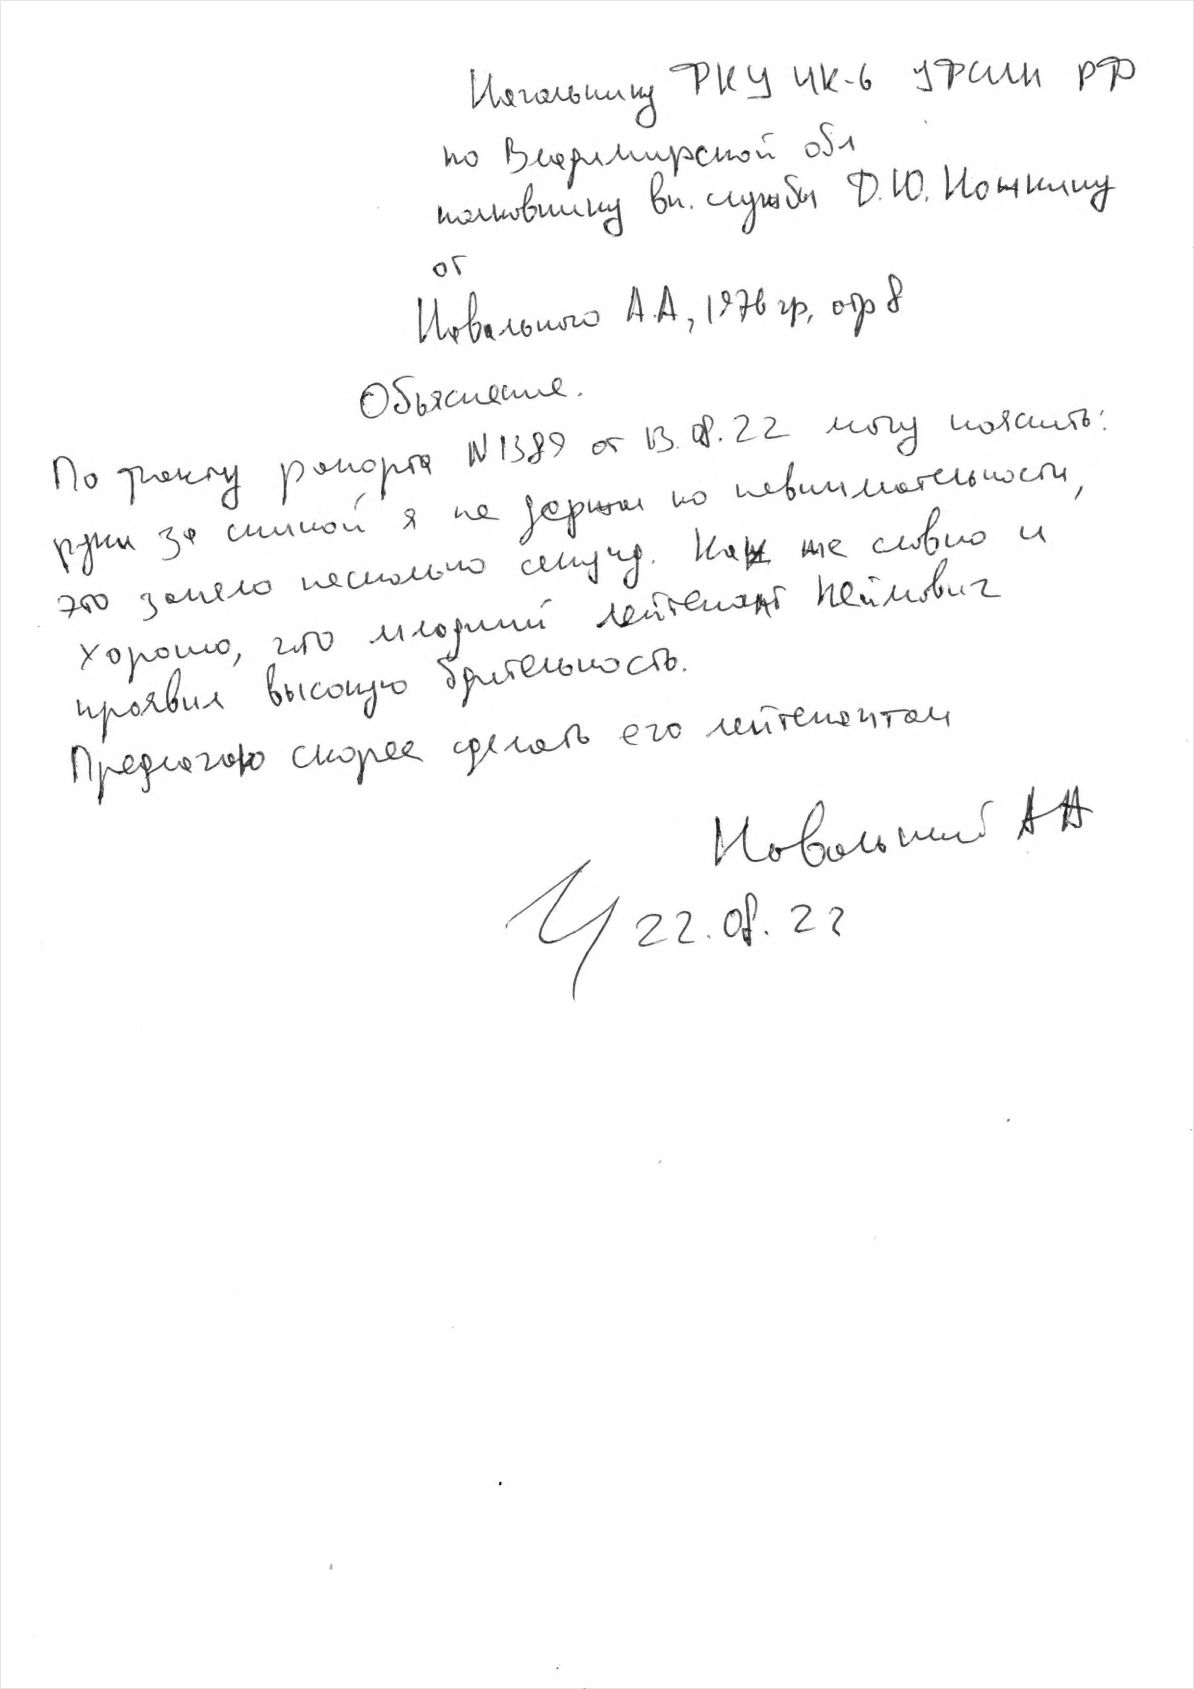 Начальнику ФКУ ИК-6 УФСИН РФ
по Владимирской обл
полковнику вн. службы Д.Ю. Ножкину
от
Навального А.А, 1976 гр, отр 8
Объяснение.
По факту рапорта N1389 от 13.08.22 могу пояснить:
руки за спиной я не держал по невнимательности,
это заняло несколько секунд. Как же славно и
хорошо, что младший лейтенант Неймович
проявил высокую бдительность.
Предлагаю скорее сделать его лейтенантом
Навальный АА
22.08.22